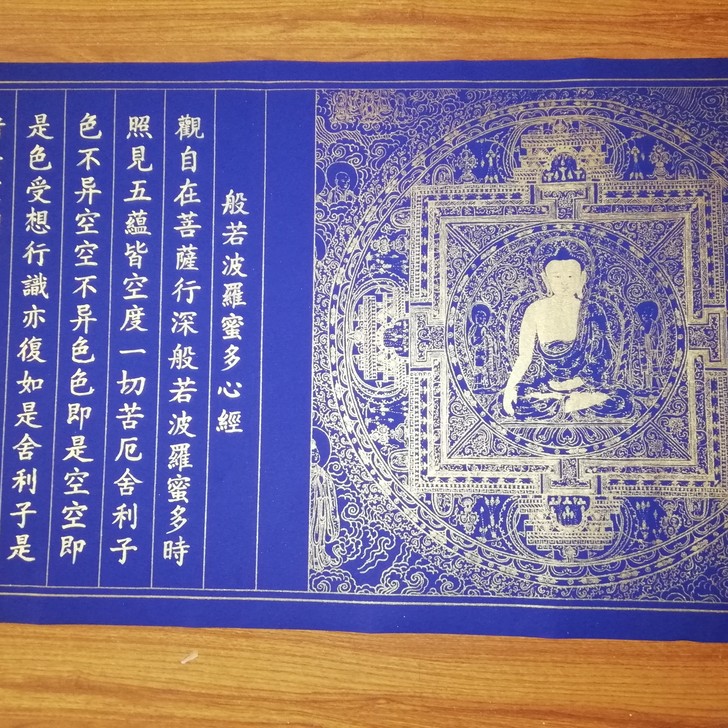 般若波羅蜜多心經
觀自在菩薩行深般若波羅蜜多時
照見五蘊皆空度一切苦厄舍利子
色不异空空不异色色即是空空即
是色受想行識亦復如是舍利子是